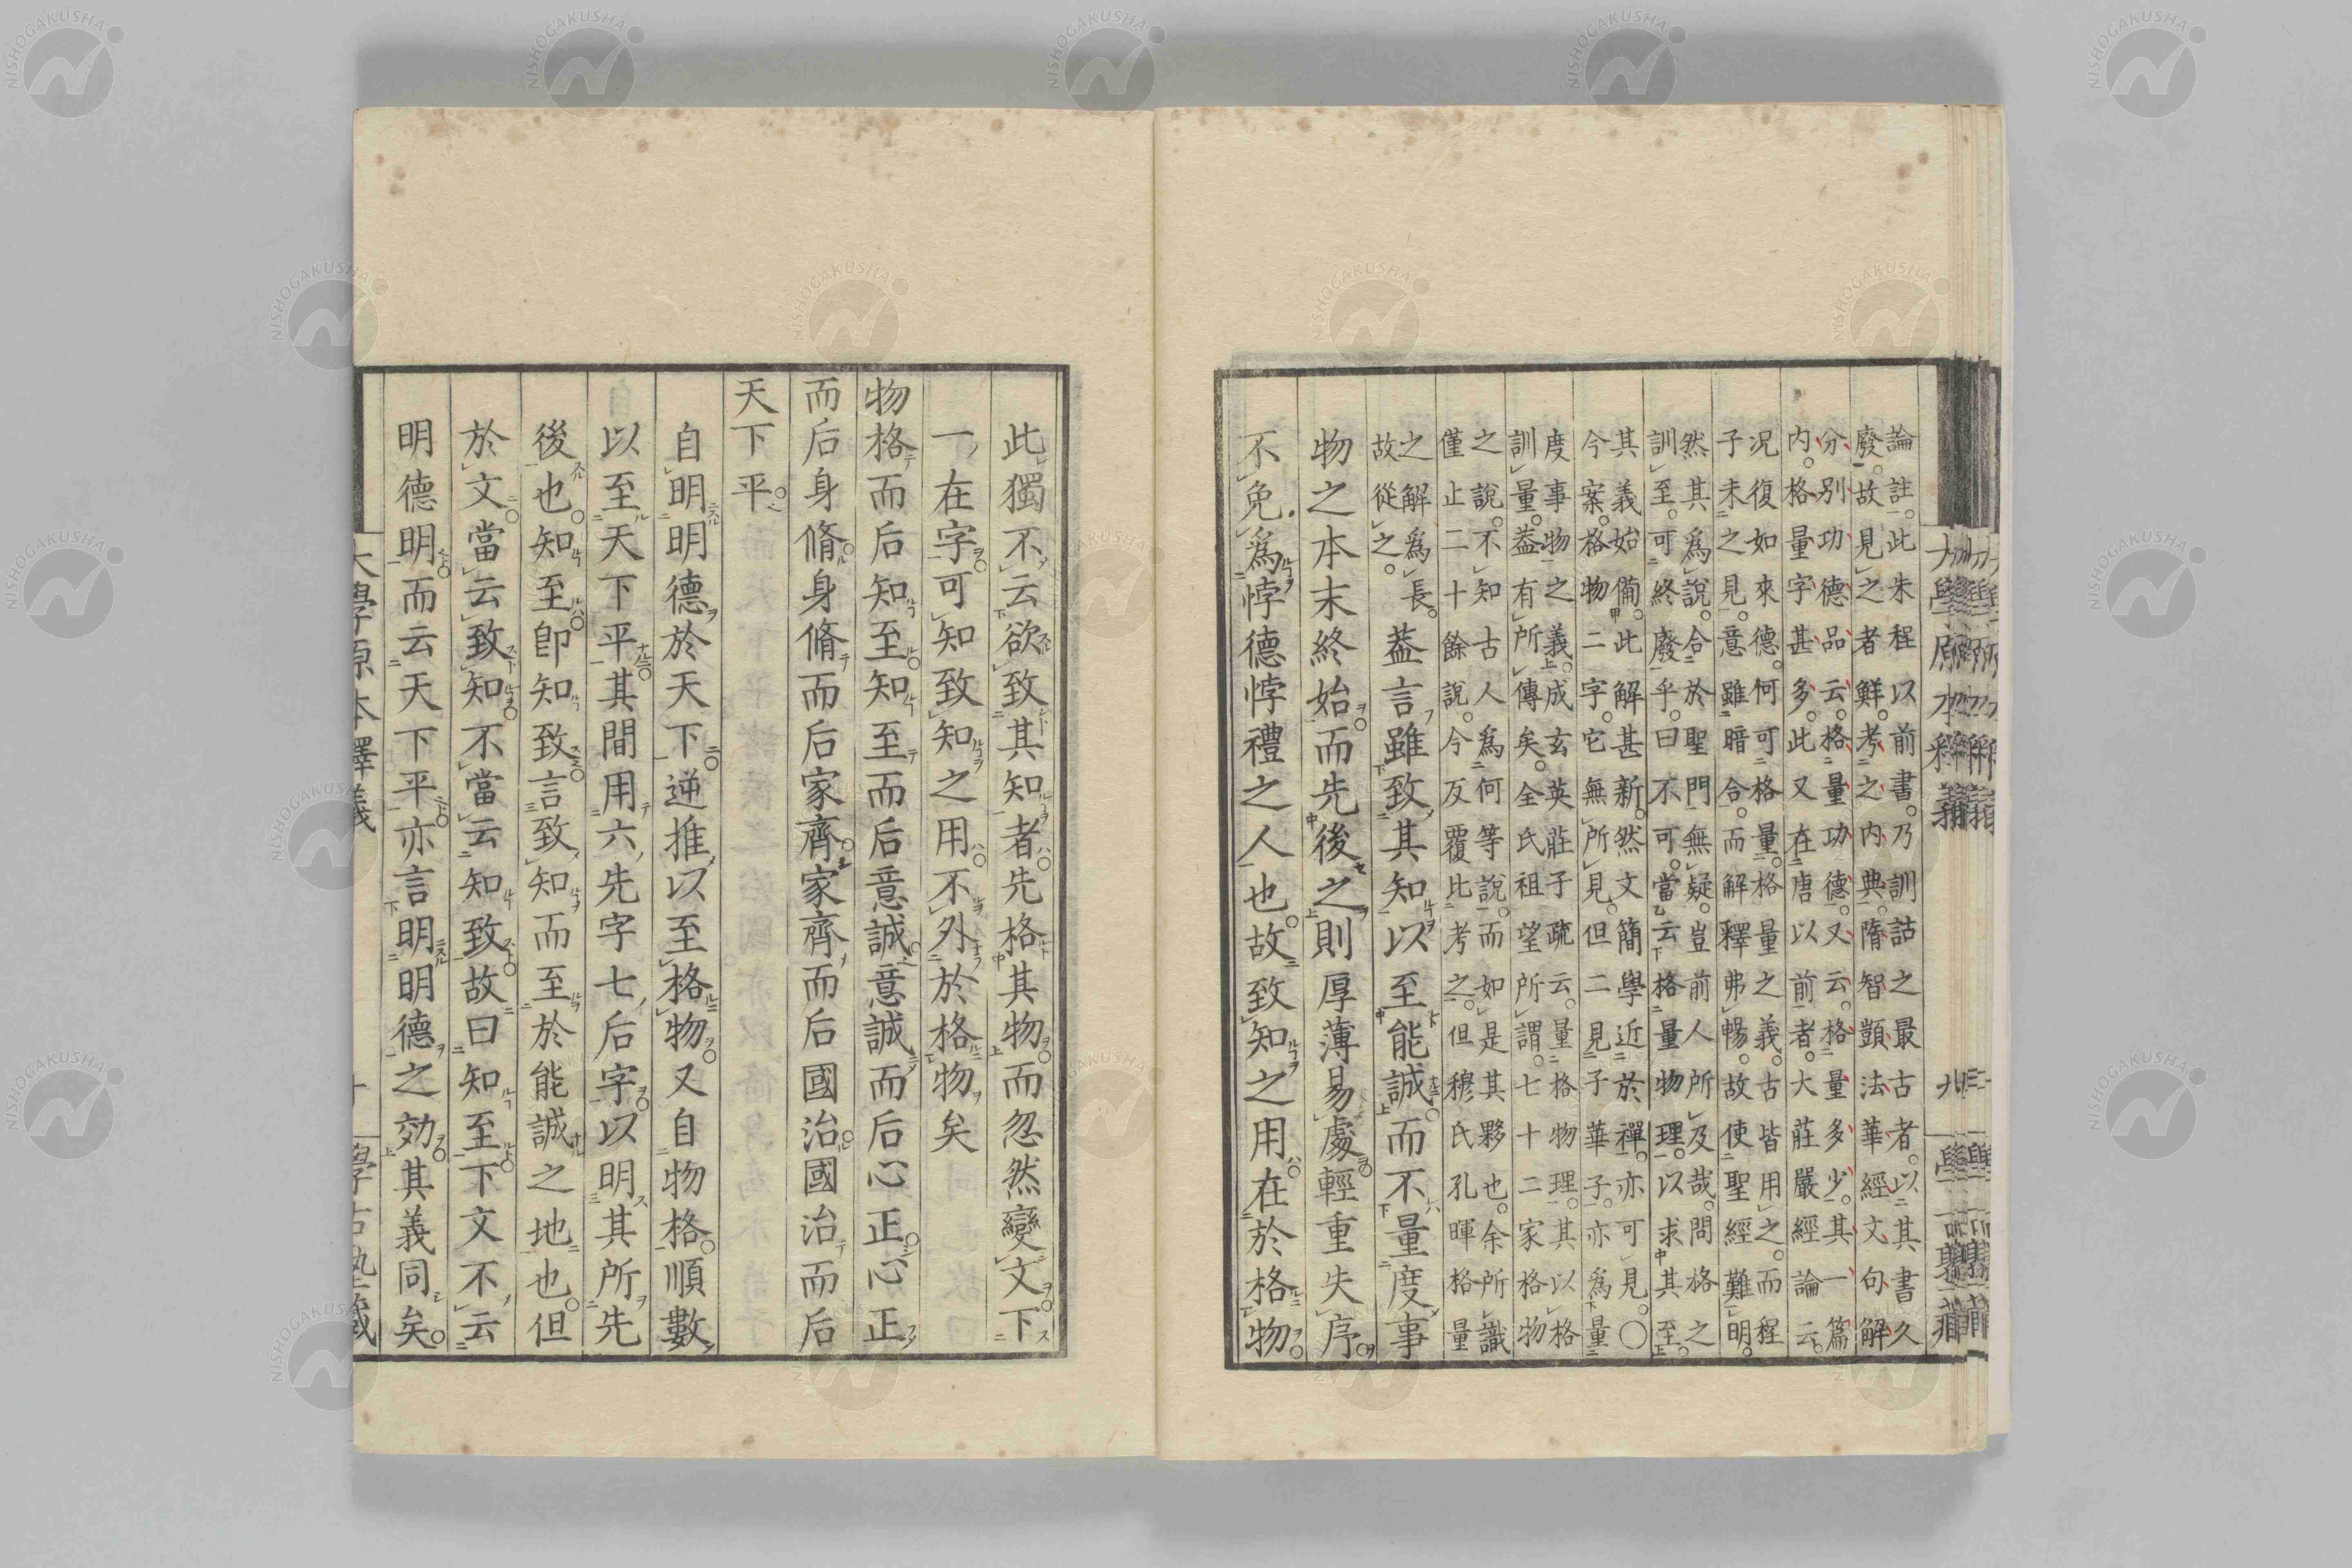 論註。此朱程以前書。乃訓詁之最古者。以其書久
廢。故見之者鮮。考之内典。隋智顗法華經文句解
分別功德品云。格量功德。又云。格量多少。其一篇
内。格量字甚多。此又在唐以前者。大莊嚴經論云。
况復如來德。何可格量。格量之義。古皆用之。而程
子未之見。意雖暗合。而解釋弗暢。故使聖經難明。
然其為說。合於聖門無疑。豈前人所及哉。問格之
訓至。可終廢乎。曰不可。當云格量物理。以求其至。
其義始備。此解甚新。然文簡學近於禪。亦可見。〇
今案。格物二字。它無所見。但二見子華子。亦為量
度事物之義。成玄英莊子疏云。量格物理。其以格
訓量。蓋有所傳矣。全氏祖望所謂。七十二家格物
之說。不知古人為何等說。而如是其夥也。余所識
僅止二十餘說。今反覆比考之。但穆氏孔暉格量
之解為長。
故從之。
蓋言雖致其知以至能誠。而不量度事
物之本末終始。而先後之則厚薄易處。輕重失序。
不免為悖德悖禮之人也。故致知之用。在於格物。
此獨不云欲致其知者。先格其物。而忽然變文。下
一在字。可知致知之用。不外於格物矣
物格而后知至。知至而后意誠。意誠而后心正。心正
而后身脩。身脩而后家齊。家齊而后國治。國治而后
天下平。
自明明德於天下。逆推以至格物。又自物格。順數
以至天下平。其間用六先字七后字。以明其所先
後也。知至。即知致。言致知而至於能誠之地也。但
於文。當云致知。不當云知致。故曰知至。下文不云
明德明。而云天下平。亦言明明德之効。其義同矣。
大學原本釋義
十
學古塾藏